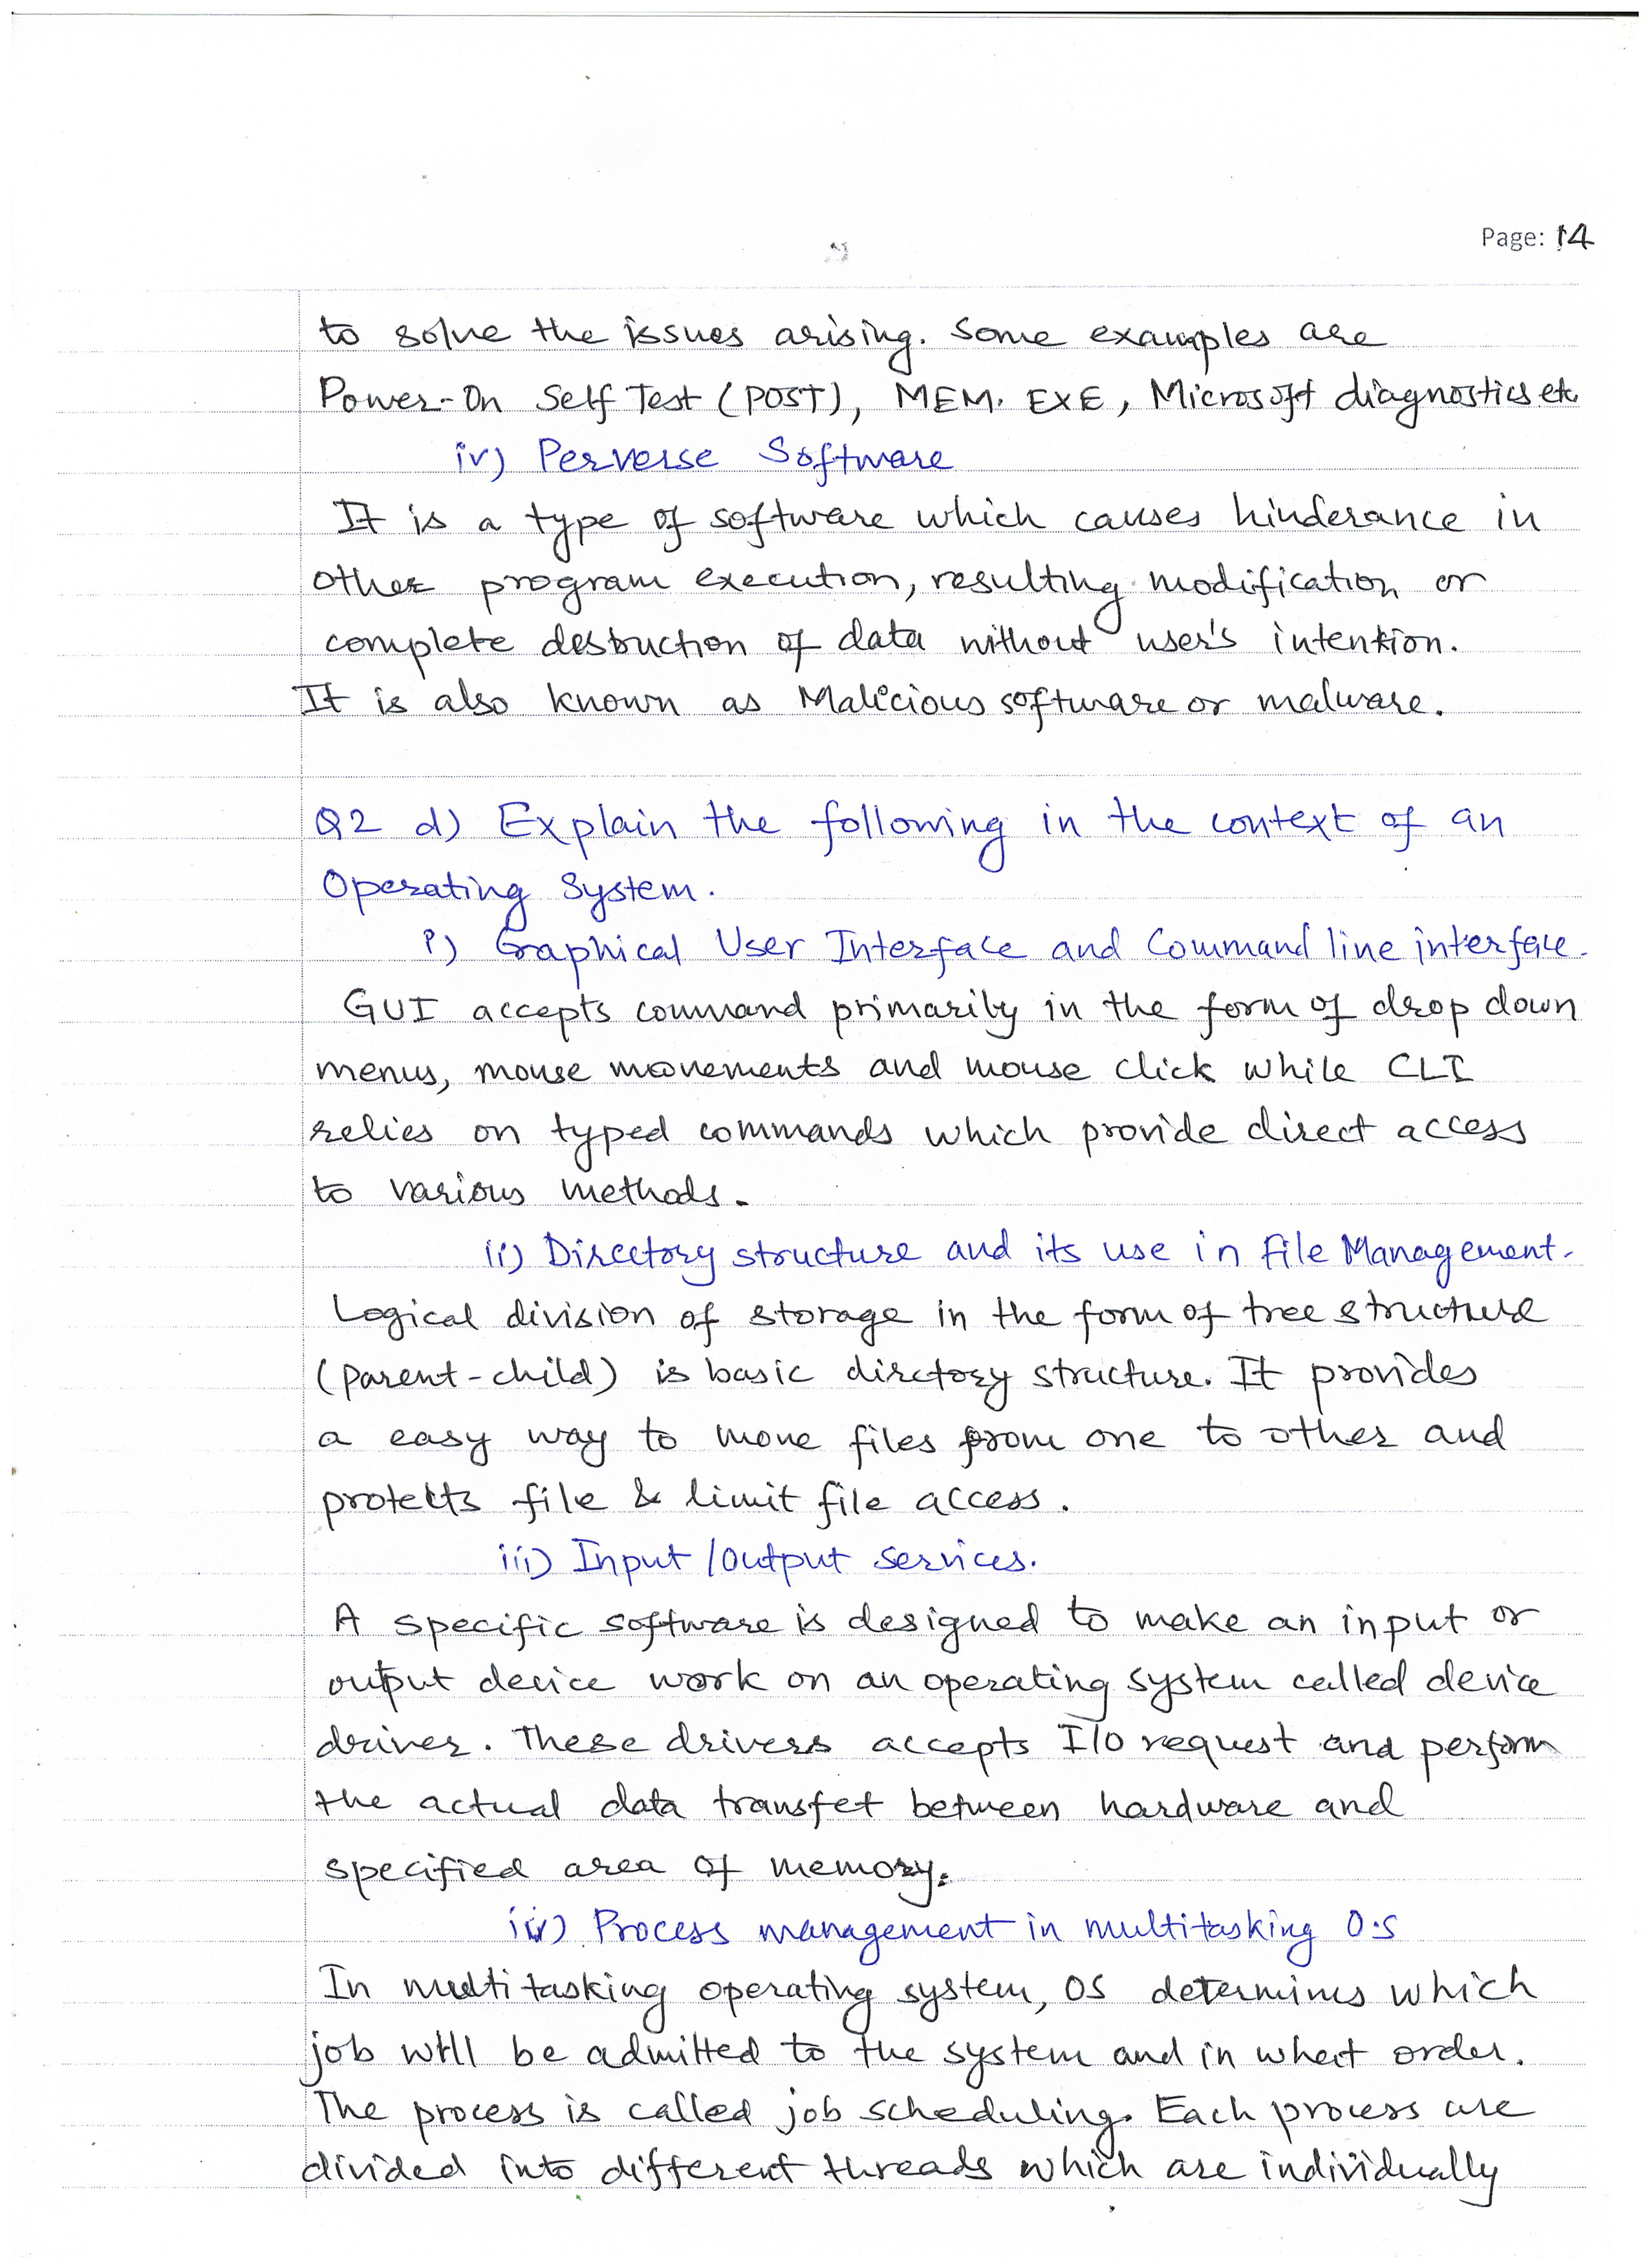 Page: 14
to solve the issues arising. Some examples are
Power-On Self Test (POST), MEM. EXE, Microsoft diagnostics etc
iv) Perverse Software
It is a type of software which causes hinderance in
other program execution, resulting modification or
complete destruction of data without user's intention.
It is also known as Malicious software or malware.
Q2 d) Explain the following in the context of an
Operating System.
i) Graphical User Interface and Command line interface.
GUI accepts command primarily in the form of drop down
menus, mouse movements and mouse click while CLI
relies on typed commands which provide direct access
to various methods.
ii) Directory structure and its use in File Management.
Logical division of storage in the form of tree structure
(parent-child) is basic dirctory structure. It provides
a easy way to move files from one to other and
protects file & limit file access.
iii) Input/Output services.
A specific software is designed to make an input or
output device work on an operating system called device
driver. These drivers accepts I/O request and perform
the actual data transfer between hardware and
specified area of memory.
iv) Process management in multitasking O.S
In multitasking operating system, OS determines which
job will be admitted to the system and in what order.
The process is called job scheduling. Each process are
divided into different threads which are individually